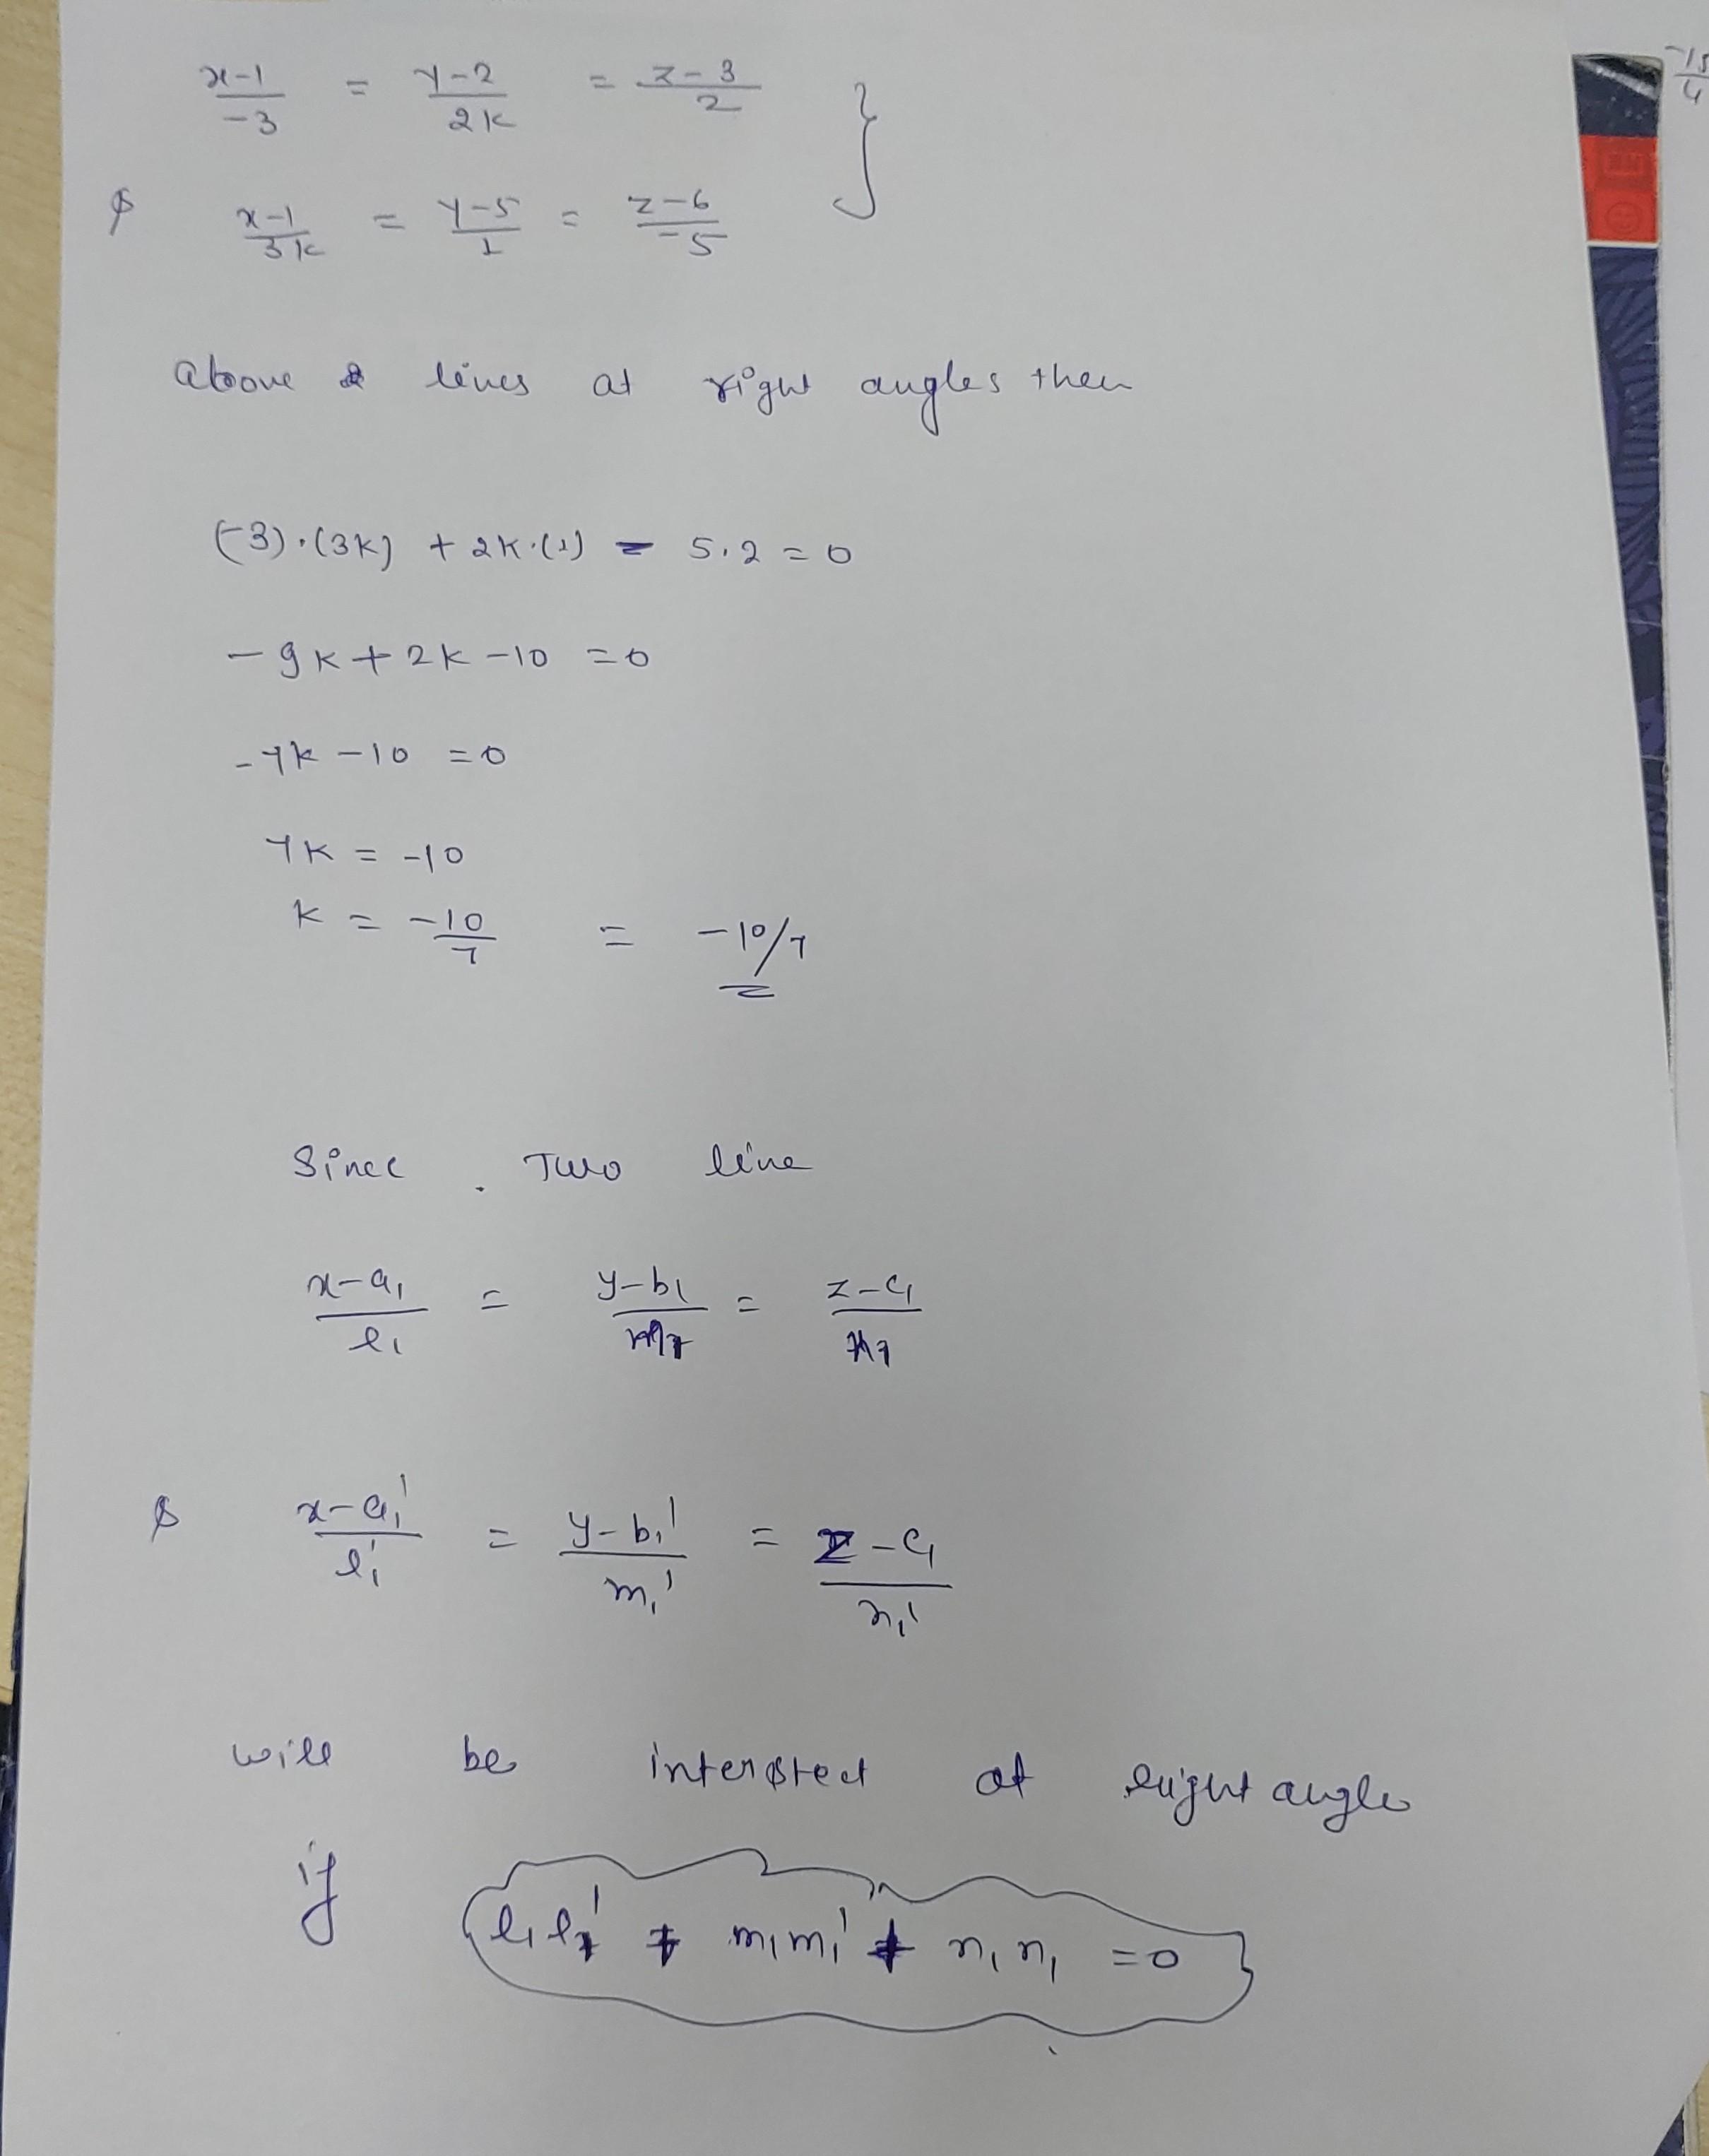 x-1/-3 = y-2/2k = z-3/2 }
& x-1/3k = y-5/1 = z-6/-5
above 2 lines at right angles then
(-3).(3k) + 2k.(1) - 5.2 = 0
-9k + 2k - 10 = 0
-7k - 10 = 0
7k = -10
k = -10/7 = -10/7
Since . Two line
x-a₁/l₁ = y-b₁/m₁ = z-c₁/n₁
& x-a₁'/l₁' = y-b₁'/m₁' = z-c₁/n₁'
will be interstect at right angle
if l₁l₁' + m₁m₁' + n₁n₁ = 0
-15/4